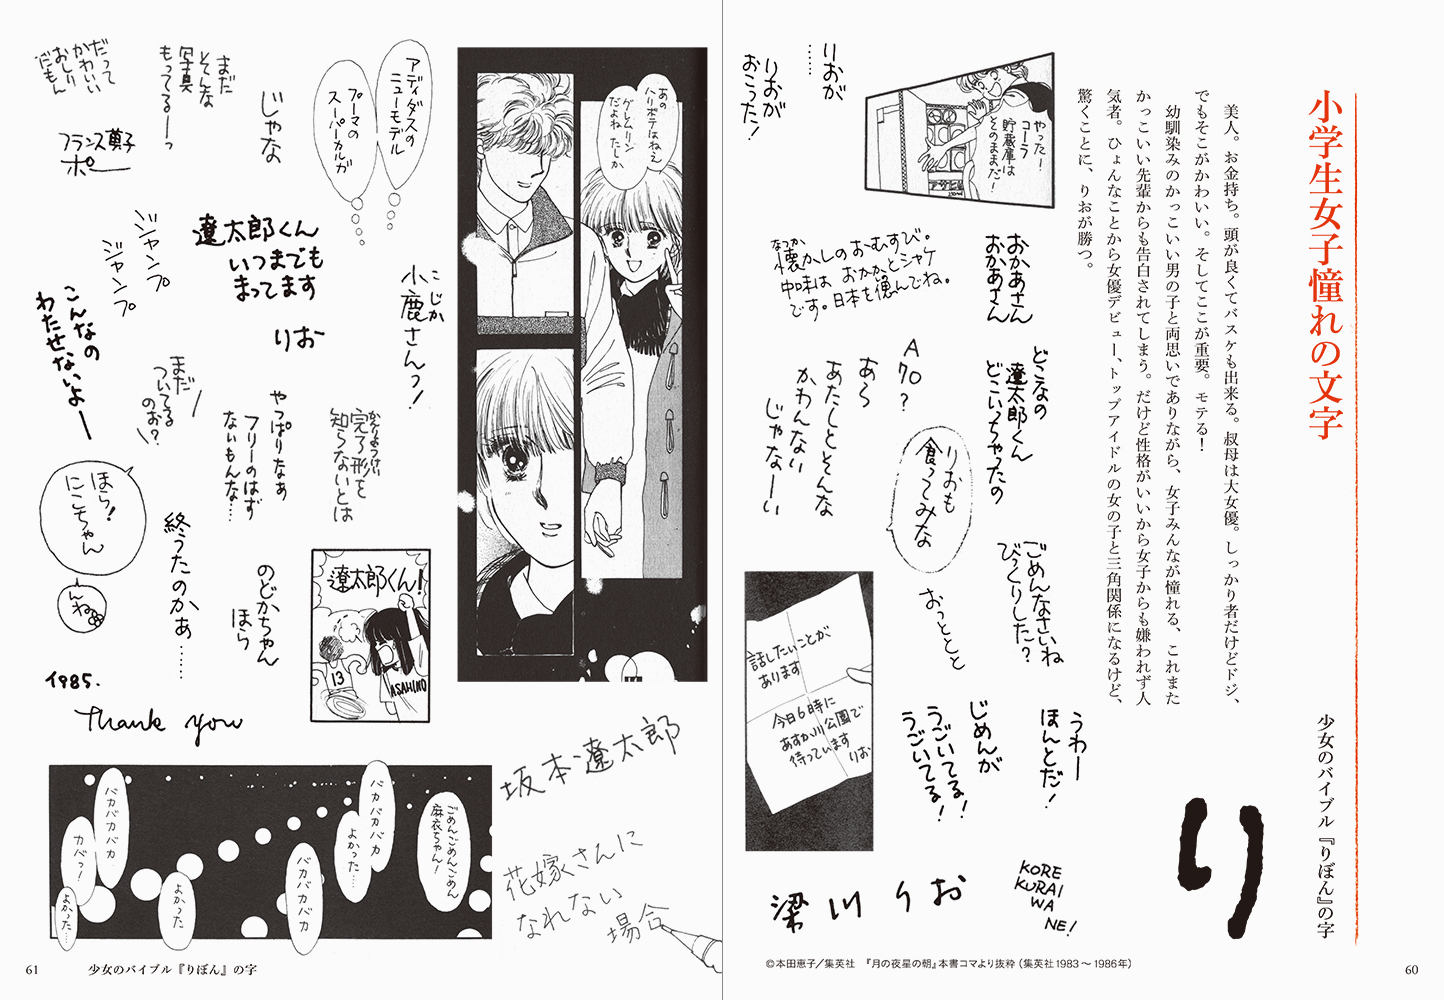 小学生女子憧れの文字
少女のバイブル『りぼん』の字
り
美人。お金持ち。頭が良くてバスケも出来る。叔母は大女優。しっかり者だけどドジ、
でもそこがかわいい。そしてここが重要。モテる！
幼馴染みのかっこいい男の子と両思いでありながら、女子みんなが憧れる、これまた
かっこいい先輩からも告白されてしまう。だけど性格がいいから女子からも嫌われず人
気者。ひょんなことから女優デビュー、トップアイドルの女の子と三角関係になるけど、
驚くことに、りおが勝つ。
やったー！
コーラ
貯蔵庫は
そのままだ！
りおが
……
りおが
おこった！
おかあさん
おかあさん
なつか
懐かしのお〜むすび。
中味は おかかとシャケ
です。日本を偲んでね。
どこなの
遼太郎くん
どこいっちゃったの
A
70?
あら
あたしとそんな
かわんない
じゃなーい
りおも
食ってみな
ごめんなさいね
びっくりした？
おっととと
話したいことが
あります
今日6時に
あすか川公園で
待っています
りお
うわー
ほんとだ！
じめんが
うごいてる！
うごいてる！
KORE
KURAI
WA
NE!
梁川りお
©本田恵子／集英社 『月の夜星の朝』本書コマより抜粋（集英社1983〜1986年）
60
あの
ハリボテはねえ
グレムリン
だよね たしか
アディダスの
ニューモデル
プーマの
スーパーカルガ
じゃな
まだ
そんな
写真
もってるーっ
だって
かわいい
おしり
だもん
フランス菓子
ポー
ジャンプ
ジャンプ
遼太郎くん
いつまでも
まってます
りお
こじか
小鹿さんっ！
こんなの
わたせないよー
まだ
ついてる
のお？
やっぱりなぁ
フリーのはず
ないもんな…
かんりょうけい
完了形を
知らないとは
ほら！
にこちゃん
んねっ
終うたのかぁ……
のどかちゃん
ほら
遼太郎くん！
13
ASAHINO
1985.
Thank you
坂本遼太郎
花嫁さんに
なれない
場合
ごめんごめんごめん
麻衣ちゃん！
バカバカバカ
よかった…
バカバカバカ
よかった
バカバカバカ
カバっ！
よかった…
61
少女のバイブル『りぼん』の字